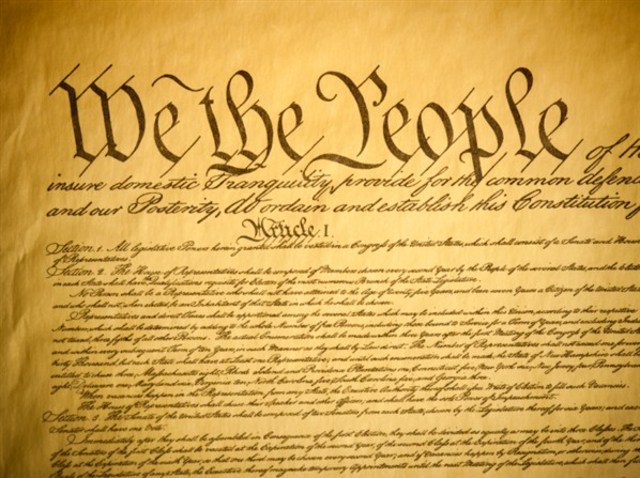 We the People of th
insure domestic Tranquility, provide for the common defenc
and our Posterity, do ordain and establish this Constitution f
Article. I.
Section. 1. All legislative Powers herein granted shall be vested in a Congress of the United States, which shall consist of a Senate and House
of Representatives.
Section. 2. The House of Representatives shall be composed of Members chosen every second Year by the People of the several States, and the Electors
in each State shall have the Qualifications requisite for Electors of the most numerous Branch of the State Legislature.
No Person shall be a Representative who shall not have attained to the Age of twenty five Years, and been seven Years a Citizen of the United States
and who shall not, when elected, be an Inhabitant of that State in which he shall be chosen.
Representatives and direct Taxes shall be apportioned among the several States which may be included within this Union, according to their respective
Numbers, which shall be determined by adding to the whole Number of free Persons, including those bound to Service for a Term of Years, and excluding Indians
not taxed, three fifths of all other Persons. The actual Enumeration shall be made within three Years after the first Meeting of the Congress of the United States
and within every subsequent Term of ten Years, in such Manner as they shall by Law direct. The Number of Representatives shall not exceed one for every
thirty Thousand, but each State shall have at Least one Representative; and until such enumeration shall be made, the State of New Hampshire shall be
entitled to chuse three, Massachusetts eight, Rhode Island and Providence Plantations one, Connecticut five, New York six, New Jersey four, Pennsylvania
eight, Delaware one, Maryland six, Virginia ten, North Carolina five, South Carolina five, and Georgia three.
When vacancies happen in the Representation from any State, the Executive Authority thereof shall issue Writs of Election to fill such Vacancies.
The House of Representatives shall chuse their Speaker and other Officers; and shall have the sole Power of Impeachment.
Section. 3. The Senate of the United States shall be composed of two Senators from each State, chosen by the Legislature thereof, for six Years; and each
Senator shall have one Vote.
Immediately after they shall be assembled in Consequence of the first Election, they shall be divided as equally as may be into three Classes. The Seats
of the Senators of the first Class shall be vacated at the Expiration of the second Year, of the second Class at the Expiration of the fourth Year, and of the third
Class at the Expiration of the sixth Year, so that one third may be chosen every second Year; and if Vacancies happen by Resignation, or otherwise, during the
Recess of the Legislature of any State, the Executive thereof may make temporary Appointments until the next Meeting of the Legislature, which shall then fill